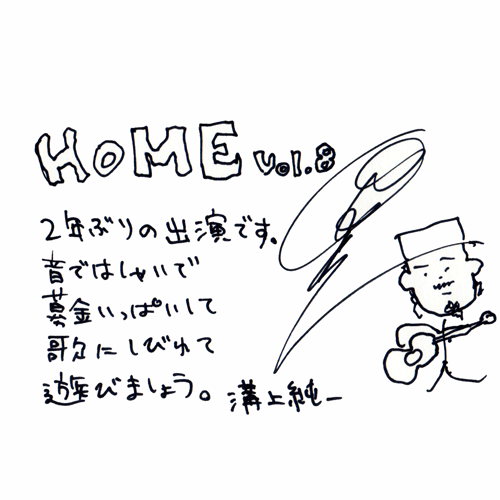 HOME vol.8
2年ぶりの出演です。
音ではしゃいで
募金いっぱいして
歌にしびれて
遊びましょう。
溝上純一